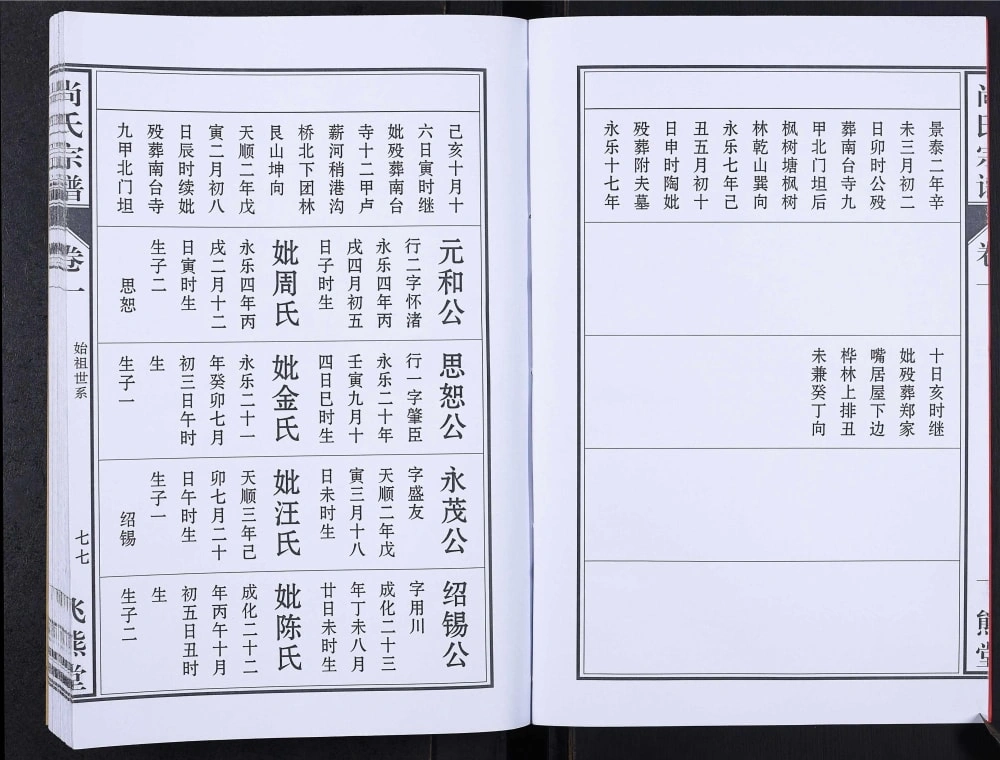 十日亥时继
妣殁葬郑家
嘴居屋下边
桦林上排丑
未兼癸丁向
景泰二年辛
未三月初二
日卯时公殁
葬南台寺九
甲北门坦后
枫树塘枫树
林乾山巽向
永乐七年己
丑五月初十
日申时陶妣
殁葬附夫墓
永乐十七年
己亥十月十
六日寅时继
妣殁葬南台
寺十二甲卢
薪河稍港沟
桥北下团林
艮山坤向
天顺二年戊
寅二月初八
日辰时续妣
殁葬南台寺
九甲北门坦
元和公
行二字怀渚
永乐四年丙
戌四月初五
日子时生
妣周氏
永乐四年丙
戌二月十二
日寅时生
生子二
思恕
思恕公
行一字肇臣
永乐二十年
壬寅九月十
四日巳时生
妣金氏
永乐二十一
年癸卯七月
初三日午时
生
生子一
永茂公
字盛友
天顺二年戊
寅三月十八
日未时生
妣汪氏
天顺三年己
卯七月二十
日午时生
生子一
绍锡
绍锡公
字用川
成化二十三
年丁未八月
廿日未时生
妣陈氏
成化二十二
年丙午十月
初五日丑时
生
生子二
尚氏宗谱
卷一
始祖世系
七七
飞熊堂